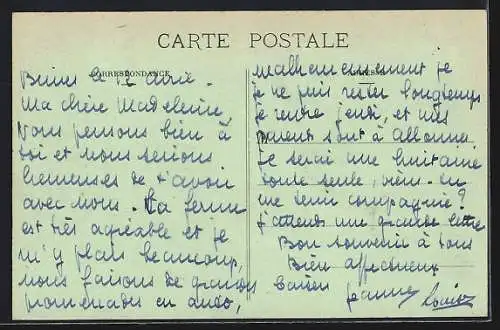 CARTE POSTALE
CORRESPONDANCE
le 12 avril
Ma chère Madeleine
Nous pensons bien à
toi et nous serions
heureuses de t'avoir
avec nous. La ferme
est très agréable et je
m'y plais beaucoup,
nous faisons de grandes
promenades en auto,
malheureusement je
je ne puis rester longtemps
je rentre jeudi, et mes
parents sont à Allonne
je serai une huitaine
toute seule, viens-tu
me tenir compagnie?
j'attends une grande lettre
Bon souvenir à tous
Bien affectueux
baiser
Jeanne